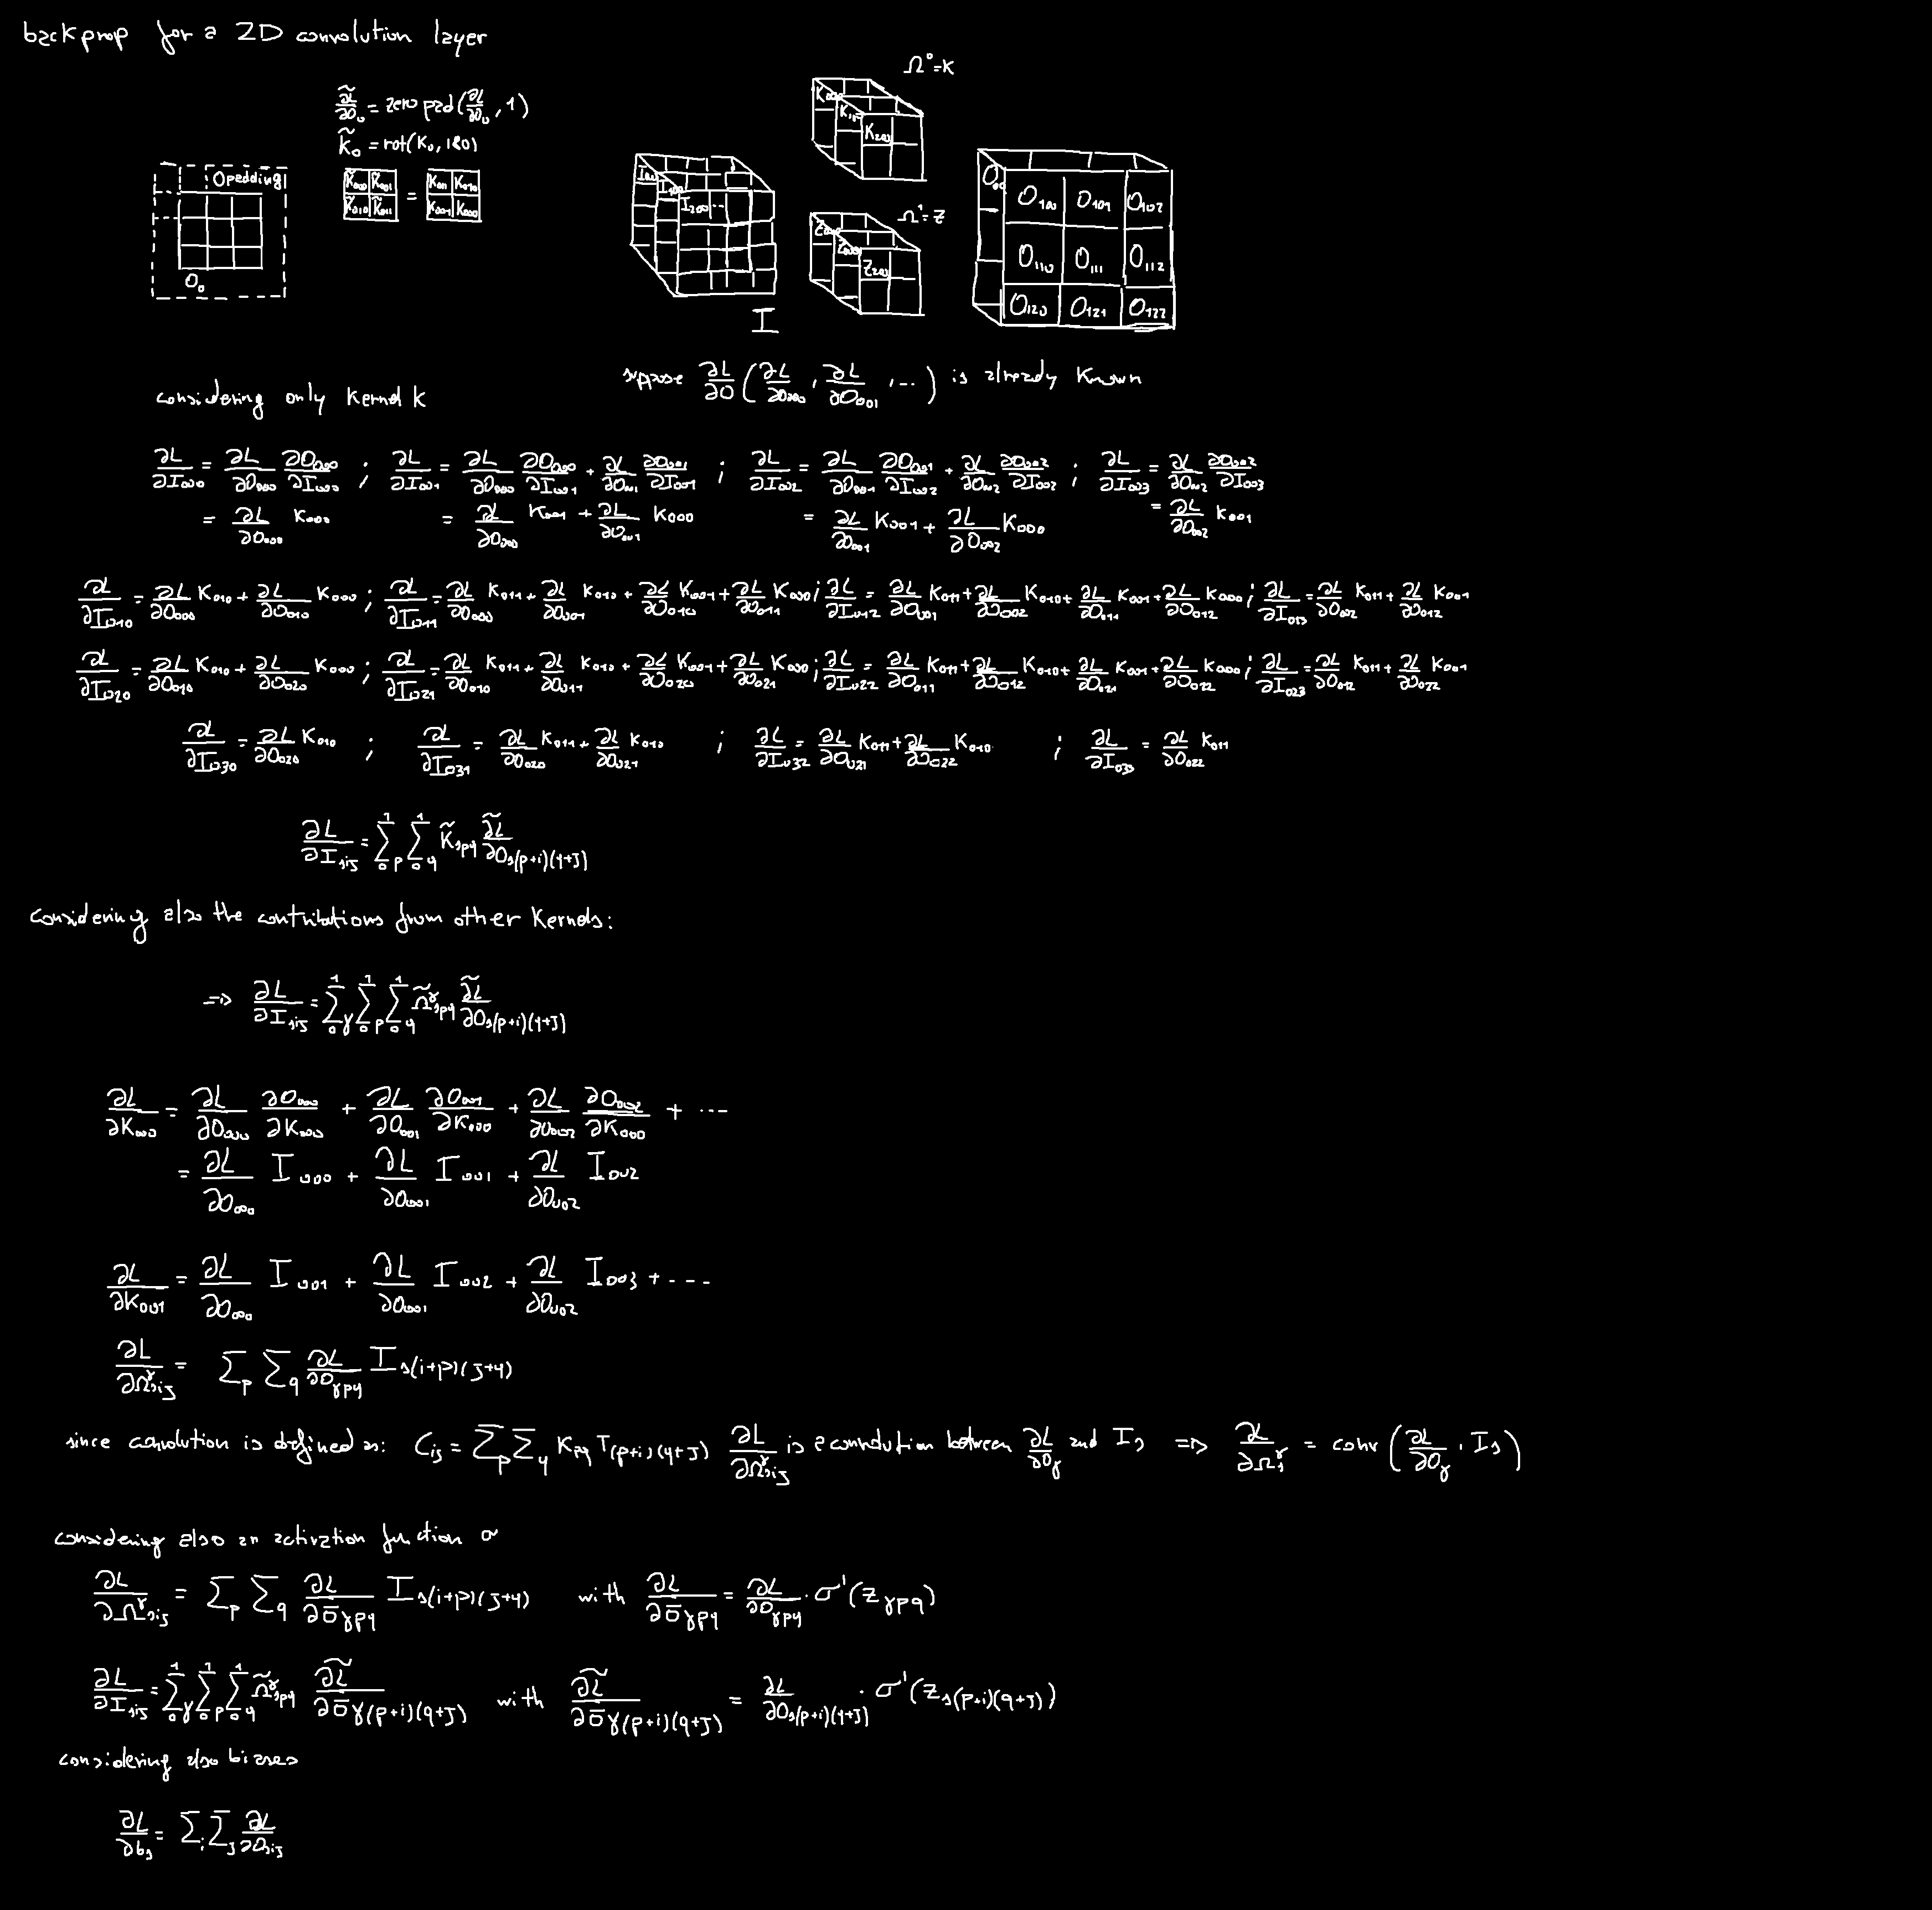 backprop for a 2D convolution layer
Ω⁰=K
∂L̃/∂O₀ = zero pad(∂L/∂O₀, 1)
K̃₀ = rot(K₀, 180)
0 padding
O₀
K̃₀₀₀ K̃₀₀₁ = K₀₁₁ K₀₁₀
K̃₀₁₀ K̃₀₁₁ K₀₀₁ K₀₀₀
K₀₀₀ K₁₀₀ K₂₀₀
I₀₀₀ I₁₀₀ I₂₀₀ ...
I
Ω¹=Z
Z₀₀₀ Z₂₀₀
O₀₀₀ O₁₀₀ O₁₀₁ O₁₀₂
O₁₁₀ O₁₁₁ O₁₁₂
O₁₂₀ O₁₂₁ O₁₂₂
suppose ∂L/∂O (∂L/∂O₀₀₀, ∂L/∂O₀₀₁, ...) is already known
considering only kernel K
∂L/∂I₀₀₀ = ∂L/∂O₀₀₀ ∂O₀₀₀/∂I₀₀₀ ; ∂L/∂I₀₀₁ = ∂L/∂O₀₀₀ ∂O₀₀₀/∂I₀₀₁ + ∂L/∂O₀₀₁ ∂O₀₀₁/∂I₀₀₁ ; ∂L/∂I₀₀₂ = ∂L/∂O₀₀₁ ∂O₀₀₁/∂I₀₀₂ + ∂L/∂O₀₀₂ ∂O₀₀₂/∂I₀₀₂ ; ∂L/∂I₀₀₃ = ∂L/∂O₀₀₂ ∂O₀₀₂/∂I₀₀₃
= ∂L/∂O₀₀₀ K₀₀₀ = ∂L/∂O₀₀₀ K₀₀₁ + ∂L/∂O₀₀₁ K₀₀₀ = ∂L/∂O₀₀₁ K₀₀₁ + ∂L/∂O₀₀₂ K₀₀₀ = ∂L/∂O₀₀₂ K₀₀₁
∂L/∂I₀₁₀ = ∂L/∂O₀₀₀ K₀₁₀ + ∂L/∂O₀₁₀ K₀₀₀ ; ∂L/∂I₀₁₁ = ∂L/∂O₀₀₀ K₀₁₁ + ∂L/∂O₀₀₁ K₀₁₀ + ∂L/∂O₀₁₀ K₀₀₁ + ∂L/∂O₀₁₁ K₀₀₀ ; ∂L/∂I₀₁₂ = ∂L/∂O₀₀₁ K₀₁₁ + ∂L/∂O₀₀₂ K₀₁₀ + ∂L/∂O₀₁₁ K₀₀₁ + ∂L/∂O₀₁₂ K₀₀₀ ; ∂L/∂I₀₁₃ = ∂L/∂O₀₀₂ K₀₁₁ + ∂L/∂O₀₁₂ K₀₀₁
∂L/∂I₀₂₀ = ∂L/∂O₀₁₀ K₀₁₀ + ∂L/∂O₀₂₀ K₀₀₀ ; ∂L/∂I₀₂₁ = ∂L/∂O₀₁₀ K₀₁₁ + ∂L/∂O₀₁₁ K₀₁₀ + ∂L/∂O₀₂₀ K₀₀₁ + ∂L/∂O₀₂₁ K₀₀₀ ; ∂L/∂I₀₂₂ = ∂L/∂O₀₁₁ K₀₁₁ + ∂L/∂O₀₁₂ K₀₁₀ + ∂L/∂O₀₂₁ K₀₀₁ + ∂L/∂O₀₂₂ K₀₀₀ ; ∂L/∂I₀₂₃ = ∂L/∂O₀₁₂ K₀₁₁ + ∂L/∂O₀₂₂ K₀₀₁
∂L/∂I₀₃₀ = ∂L/∂O₀₂₀ K₀₁₀ ; ∂L/∂I₀₃₁ = ∂L/∂O₀₂₀ K₀₁₁ + ∂L/∂O₀₂₁ K₀₁₀ ; ∂L/∂I₀₃₂ = ∂L/∂O₀₂₁ K₀₁₁ + ∂L/∂O₀₂₂ K₀₁₀ ; ∂L/∂I₀₃₃ = ∂L/∂O₀₂₂ K₀₁₁
∂L/∂I_sij = Σ_p⁰¹ Σ_q⁰¹ K̃_spq ∂L̃/∂O_s(p+i)(q+j)
considering also the contributions from other kernels:
=> ∂L/∂I_sij = Σ_γ⁰¹ Σ_p⁰¹ Σ_q⁰¹ Ω̃^γ_spq ∂L̃/∂O_s(p+i)(q+j)
∂L/∂K₀₀₀ = ∂L/∂O₀₀₀ ∂O₀₀₀/∂K₀₀₀ + ∂L/∂O₀₀₁ ∂O₀₀₁/∂K₀₀₀ + ∂L/∂O₀₀₂ ∂O₀₀₂/∂K₀₀₀ + ...
= ∂L/∂O₀₀₀ I₀₀₀ + ∂L/∂O₀₀₁ I₀₀₁ + ∂L/∂O₀₀₂ I₀₀₂
∂L/∂K₀₀₁ = ∂L/∂O₀₀₀ I₀₀₁ + ∂L/∂O₀₀₁ I₀₀₂ + ∂L/∂O₀₀₂ I₀₀₃ + ....
∂L/∂Ω^γ_sij = Σ_p Σ_q ∂L/∂O_γpq I_s(i+p)(j+q)
since convolution is defined as: C_ij = Σ_p Σ_q K_pq T_(p+i)(q+j) ∂L/∂Ω^γ_sij is a convolution between ∂L/∂O_γ and I_s => ∂L/∂Ω^γ_s = conv(∂L/∂O_γ, I_s)
considering also an activation function σ
∂L/∂Ω^γ_sij = Σ_p Σ_q ∂L/∂Ō_γpq I_s(i+p)(j+q) with ∂L/∂Ō_γpq = ∂L/∂O_γpq · σ'(z_γpq)
∂L/∂I_sij = Σ_γ⁰¹ Σ_p⁰¹ Σ_q⁰¹ Ω̃^γ_spq ∂L̃/∂Ō_γ(p+i)(q+j) with ∂L̃/∂Ō_γ(p+i)(q+j) = ∂L/∂O_s(p+i)(q+j) · σ'(z_s(p+i)(q+j))
considering also biases
∂L/∂b_s = Σ_i Σ_j ∂L/∂O_sij